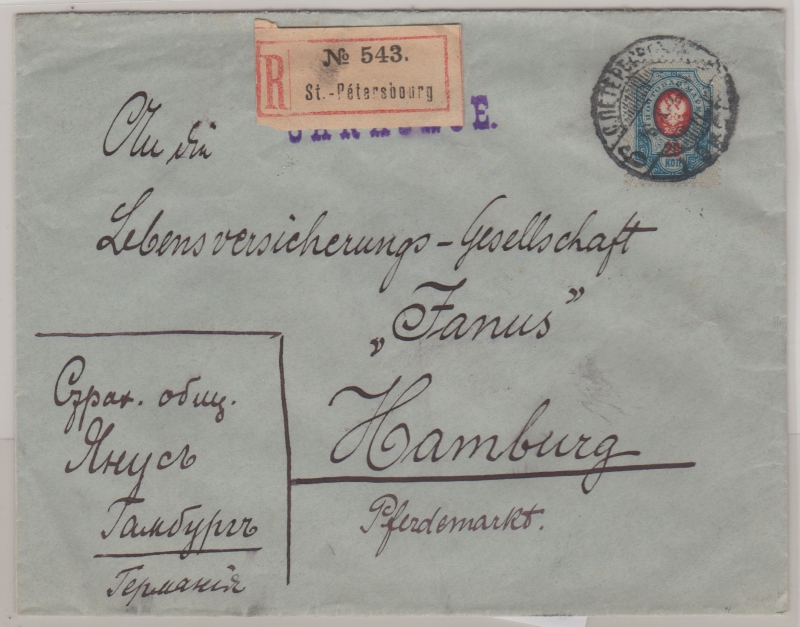 R
№ 543.
St.-Pétersbourg
С.ПЕТЕРБУРГ
20
КОП
An die
Lebensversicherungs-Gesellschaft
„Janus”
Hamburg
Pferdemarkt.
Страх. общ.
Янусъ
Гамбургъ
Германія